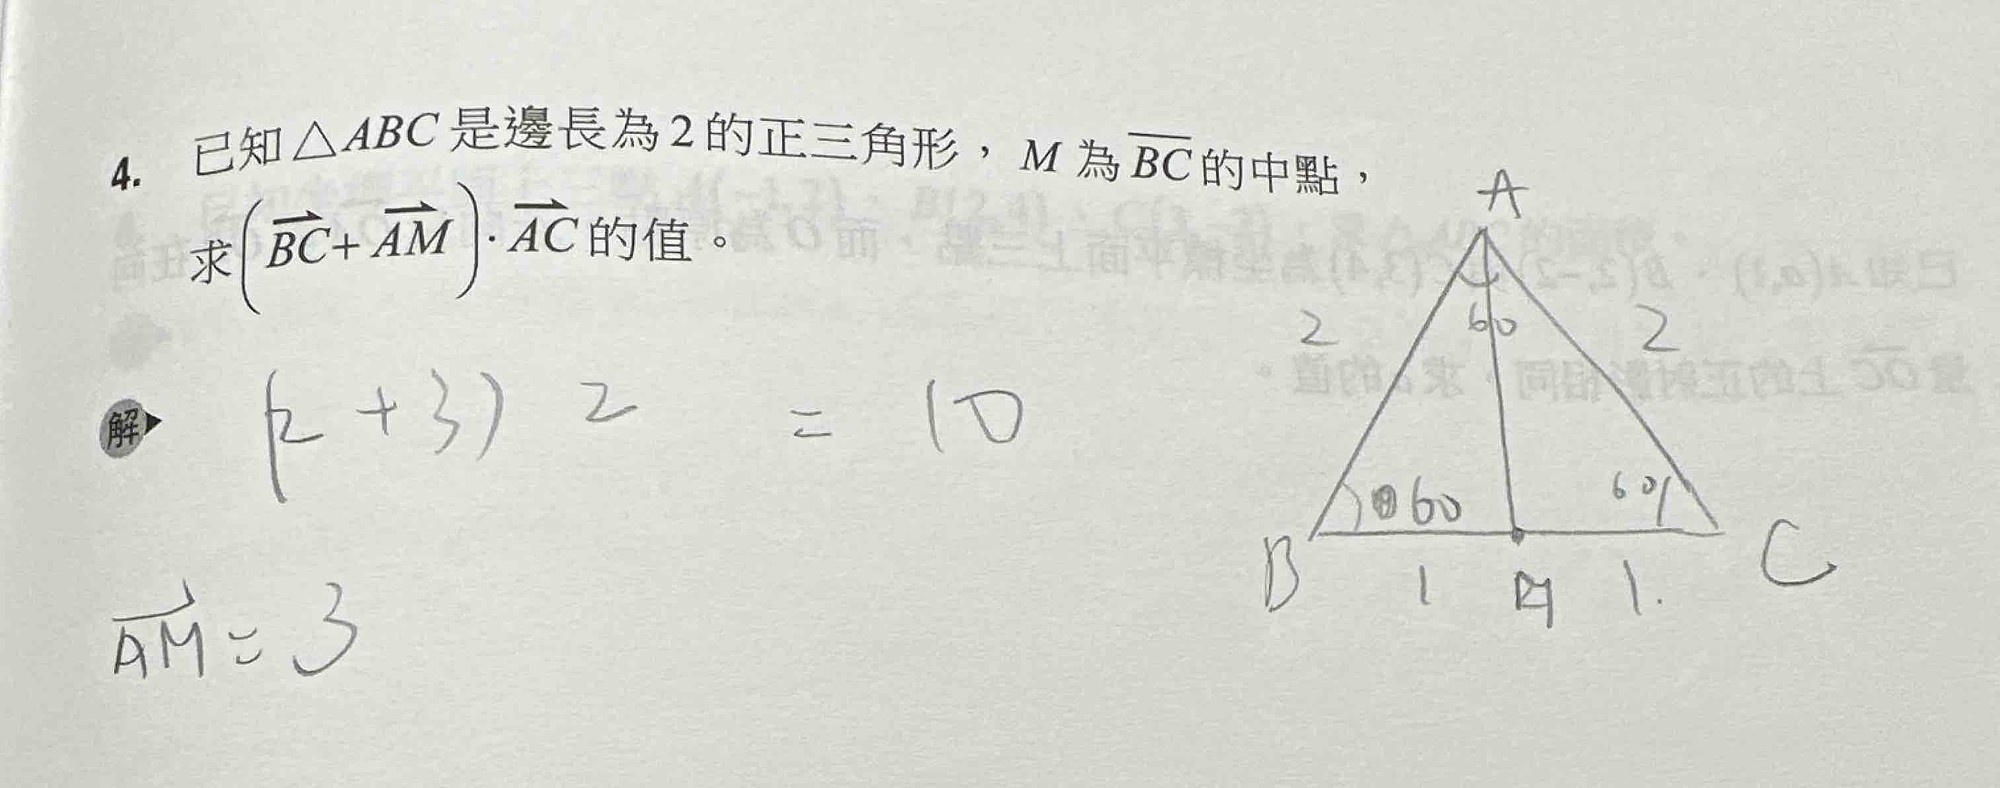 4. 已知△ABC是邊長為2的正三角形，M為BC的中點，
求(BC+AM)·AC的值。
解 (2+3) 2 = 10
AM = 3
A
2 60 2
60 60
B 1 M 1. C